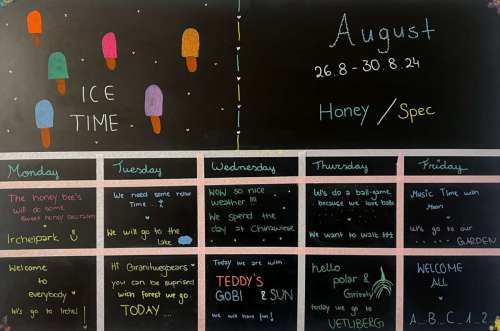 ICE
TIME
August
26.8 - 30.8.24
Honey / Spec
Monday
Tuesday
Wednesday
Thursday
Friday
The honey bee's
will do some
sweet honey
Irchelpark
We need some
Time ...
We will go to the
lake
WOW so nice
weather !!!
We spend the
day at Chinawiese
Let's do a ball-game
because we love balls
We want to walk
Music Time with
Let's go to our
GARDEN
Welcome
to
everybody
Let's go to Irchel!
Hi Granitwegbears
you can be suprised
with forest we go
TODAY ...
Today we are with
TEDDY'S
GOBI & SUN
we will have fun!
hello
polar &
today we go to
UETLIBERG
WELCOME
ALL
A..B..C..1..2